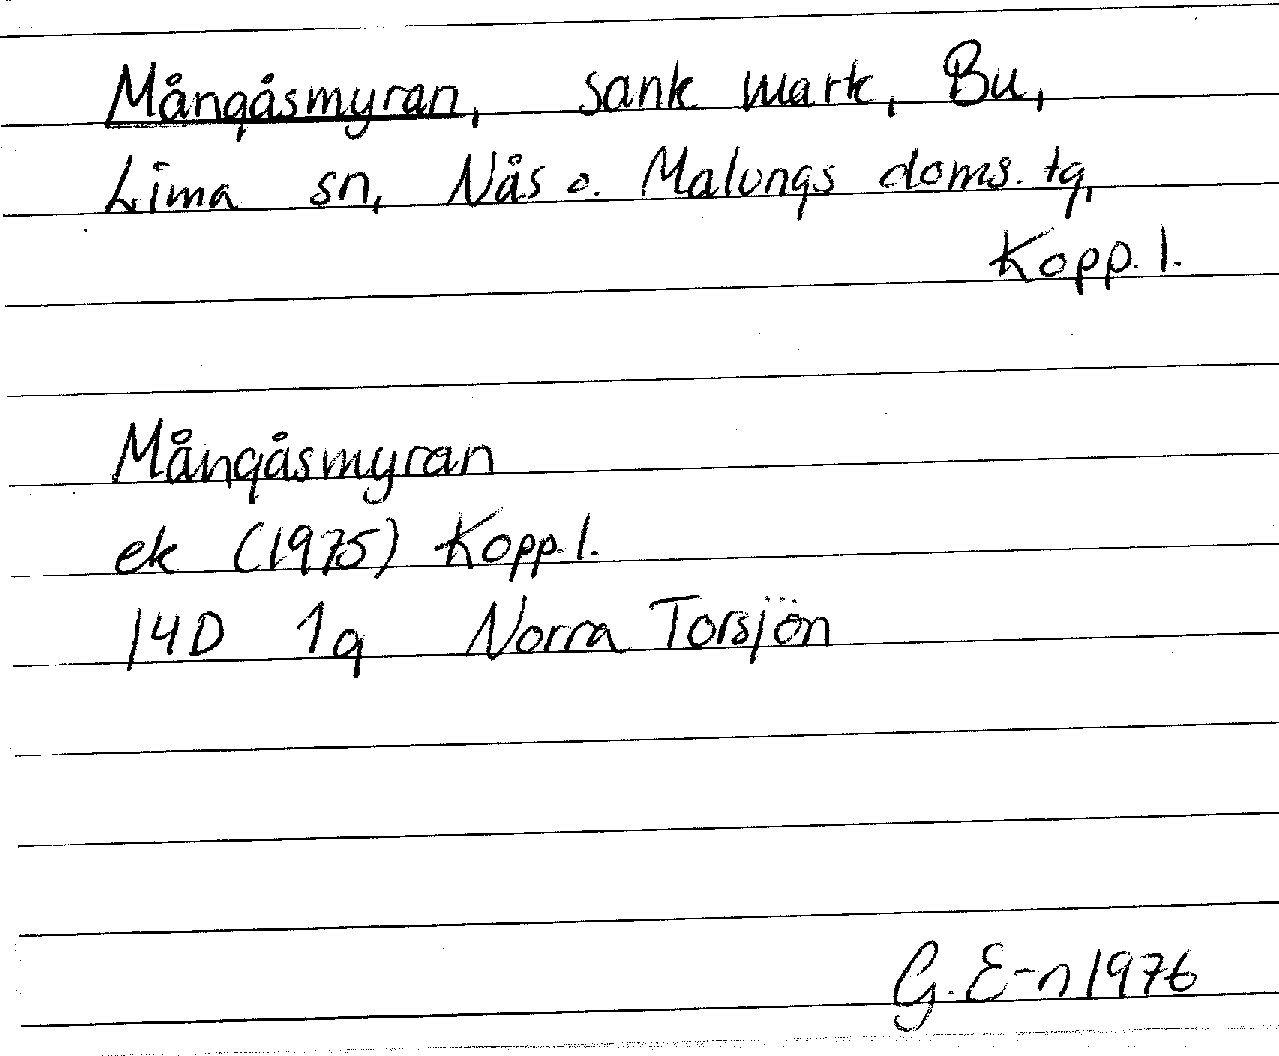 Mångåsmyran, sank mark, Bu,
Lima sn, Nås o. Malungs doms. tg,
Kopp. l.
Mångåsmyran
ek (1975) Kopp. l.
14D 1g Norra Torsjön
G. E-n 1976